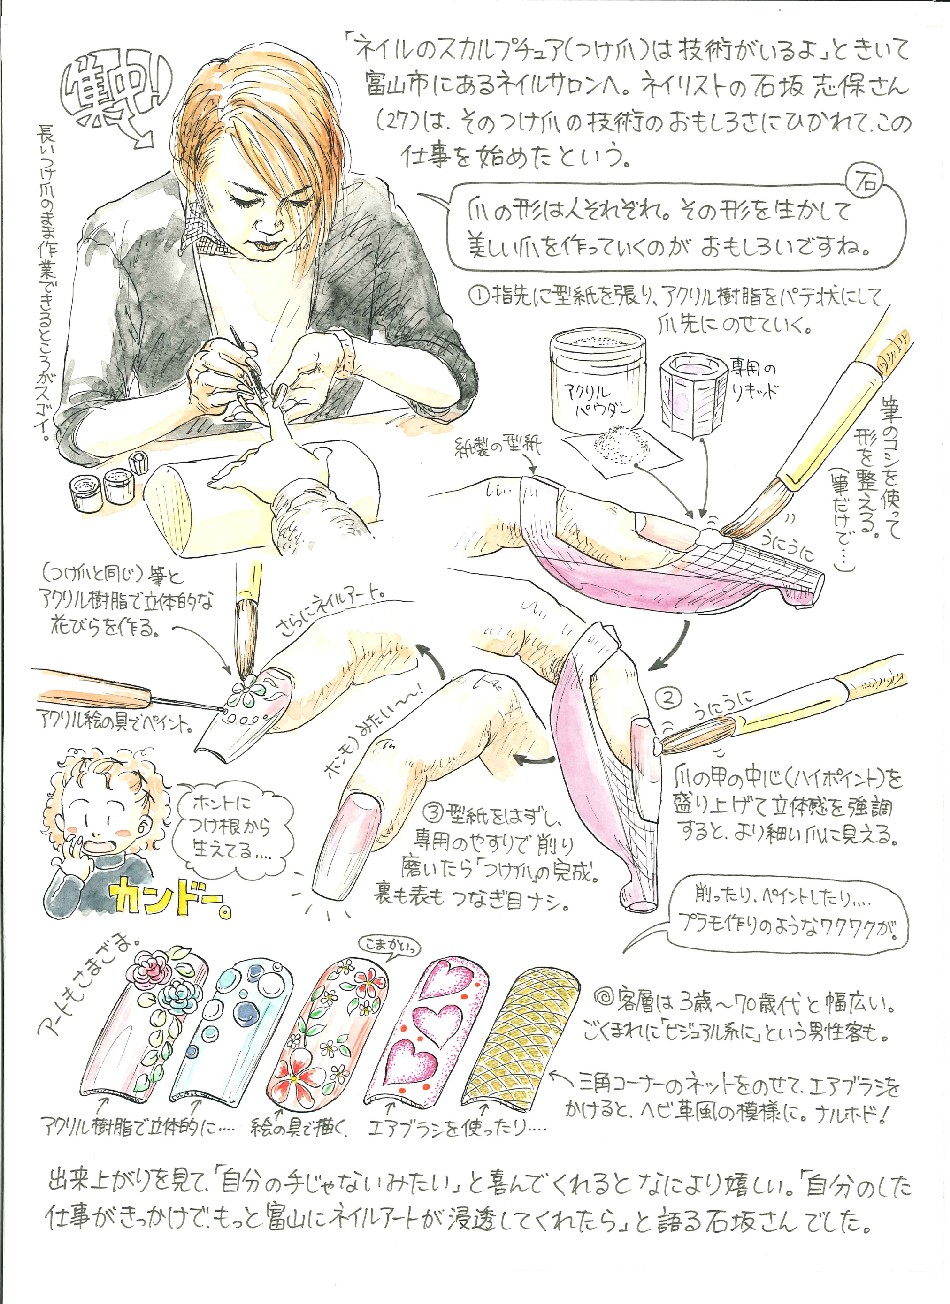 「ネイルのスカルプチュア(つけ爪)は技術がいるよ」ときいて
富山市にあるネイルサロンへ。ネイリストの石坂 志保さん
(27)は、そのつけ爪の技術のおもしろさにひかれて、この
仕事を始めたという。
集中!
長いつけ爪のまま作業できるところがスゴイ。
石
爪の形は人それぞれ。その形を生かして
美しい爪を作っていくのが おもしろいですね。
①指先に型紙を張り、アクリル樹脂をパテ状にして
爪先にのせていく。
アクリル
パウダー
専用の
リキッド
紙製の型紙
筆のコシを使って
形を整える。
(筆だけで…)
うにうに
(つけ爪と同じ)筆と
アクリル樹脂で立体的な
花びらを作る。
さらにネイルアート。
アクリル絵の具でペイント。
ホンモノみたい〜〜!
②
うにうに
爪の甲の中心(ハイポイント)を
盛り上げて立体感を強調
すると、より細い爪に見える。
③型紙をはずし、
専用のやすりで削り
磨いたら「つけ爪」の完成。
裏も表も つなぎ目ナシ。
ホントに
つけ根から
生えてる….
カンドー。
削ったり、ペイントしたり….
プラモ作りのようなワクワクが。
アートもさまざま。
こまかいっ
◎客層は3歳〜70歳代と幅広い。
ごくまれに「ビジュアル系に」という男性客も。
三角コーナーのネットをのせて、エアブラシを
かけると、ヘビ革風の模様に。ナルホド!
アクリル樹脂で立体的に….
絵の具で描く、
エアブラシを使ったり….
出来上がりを見て、「自分の手じゃないみたい」と喜んでくれるとなにより嬉しい。「自分のした
仕事がきっかけで、もっと富山にネイルアートが浸透してくれたら」と語る石坂さんでした。